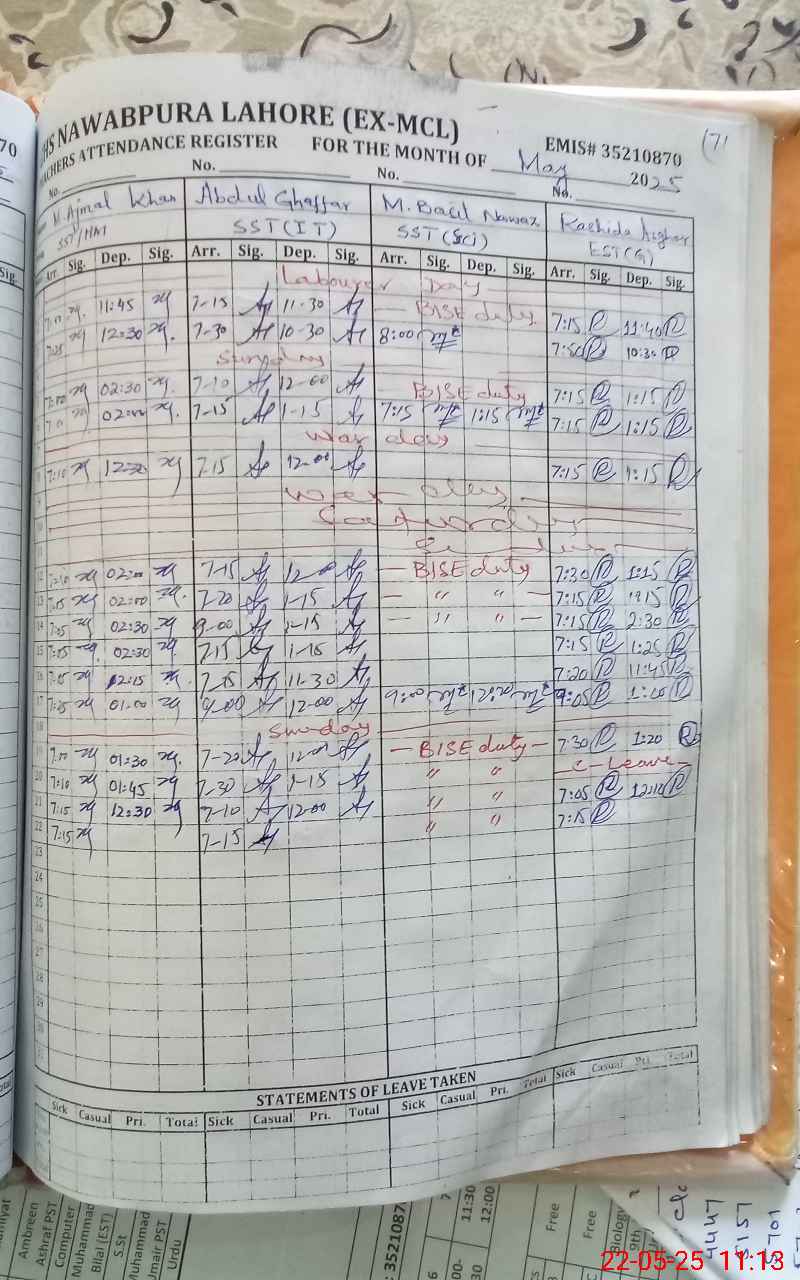 HS NAWABPURA LAHORE (EX-MCL)
EMIS# 35210870
ACHERS ATTENDANCE REGISTER FOR THE MONTH OF May 2025
No. No. No. No.
M. Ajmal Khan Abdul Ghaffar M. Basil Nawaz Rashida Asghar
SST/HM SST(IT) SST(Sci) EST(G)
Arr. Sig. Dep. Sig. Arr. Sig. Dep. Sig. Arr. Sig. Dep. Sig. Arr. Sig. Dep. Sig.
Labourer Day
11:45 7-15 11-30 BISE duty 7:15 11:40
7:25 12:30 7-30 10-30 8:00 7:50 10:30
Sunday
7:00 02:30 7-10 12-00 BISE duty 7:15 1:15
02:00 7-15 1-15 7:15 1:15 7:15 1:15
War day
8 7:10 12:30 7.15 12-00 7:15 1:15
9 War day
10 Saturday
11
12 02:00 7-15 12-00 BISE duty 7:30 1:15
13 7:05 02:00 7-20 1-15 " " 7:15 1:15
14 7:05 02:30 9-00 1-15 " " 7:15 2:30
15 7:05 02:30 7.15 1-15 7:15 1:25
16 7:05 12:15 7-15 11-30 7:20 11:45
17 7:25 01:00 9-00 12-00 9:00 9:05 1:00
18 Sunday
19 7:00 01:30 7-20 12-00 BISE duty 7:30 1:20
20 7:10 01:45 7-30 1-15 " " C-Leave
21 7:15 12:30 7-10 12-00 " " 7:05 12:10
22 7:15 7-15 " " 7:15
23
24
25
26
27
28
29
30
31
STATEMENTS OF LEAVE TAKEN
Sick Casual Pri. Total Sick Casual Pri. Total Sick Casual Pri. Total Sick Casual Pri. Total
Ambreen
Ashraf PST
Computer
Muhammad
Bilal (EST)
S.St
Muhammad
Umair PST
Urdu
: 3521087
11:30
12:00
Free
Free
Biology
9th
4447
5157
5701
22-05-25 11:13